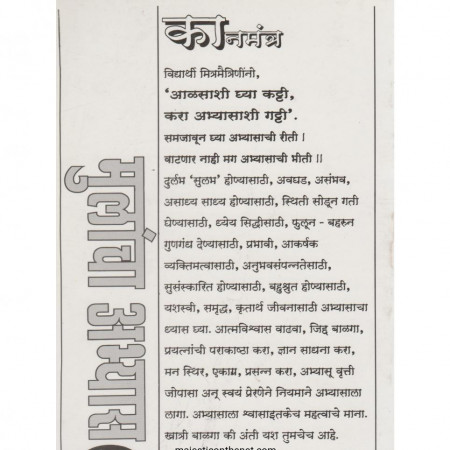 कानमंत्र
विद्यार्थी मित्रमैत्रिणींनो,
‘आळसाशी घ्या कट्टी,
करा अभ्यासाशी गट्टी’.
समजावून घ्या अभ्यासाची रीती ।
वाटणार नाही मग अभ्यासाची भीती ॥
दुर्लभ ‘सुलभ’ होण्यासाठी, अवघड, असंभव,
असाध्य साध्य होण्यासाठी, स्थिती सोडून गती
घेण्यासाठी, ध्येय सिद्धीसाठी, फुलून - बहरून
गुणगंध देण्यासाठी, प्रभावी, आकर्षक
व्यक्तिमत्वासाठी, अनुभवसंपन्नतेसाठी,
सुसंस्कारित होण्यासाठी, बहुश्रुत होण्यासाठी,
यशस्वी, समृद्ध, कृतार्थ जीवनासाठी अभ्यासाचा
ध्यास घ्या. आत्मविश्वास वाढवा, जिद्द बाळगा,
प्रयत्नांची पराकाष्ठा करा, ज्ञान साधना करा,
मन स्थिर, एकाग्र, प्रसन्न करा, अभ्यासू वृत्ती
जोपासा अन् स्वयं प्रेरणेने नियमाने अभ्यासाला
लागा. अभ्यासाला श्वासाइतकेच महत्वाचे माना.
खात्री बाळगा की अंती यश तुमचेच आहे.
मुलांचा अभ्यास
majesticonthenet.com